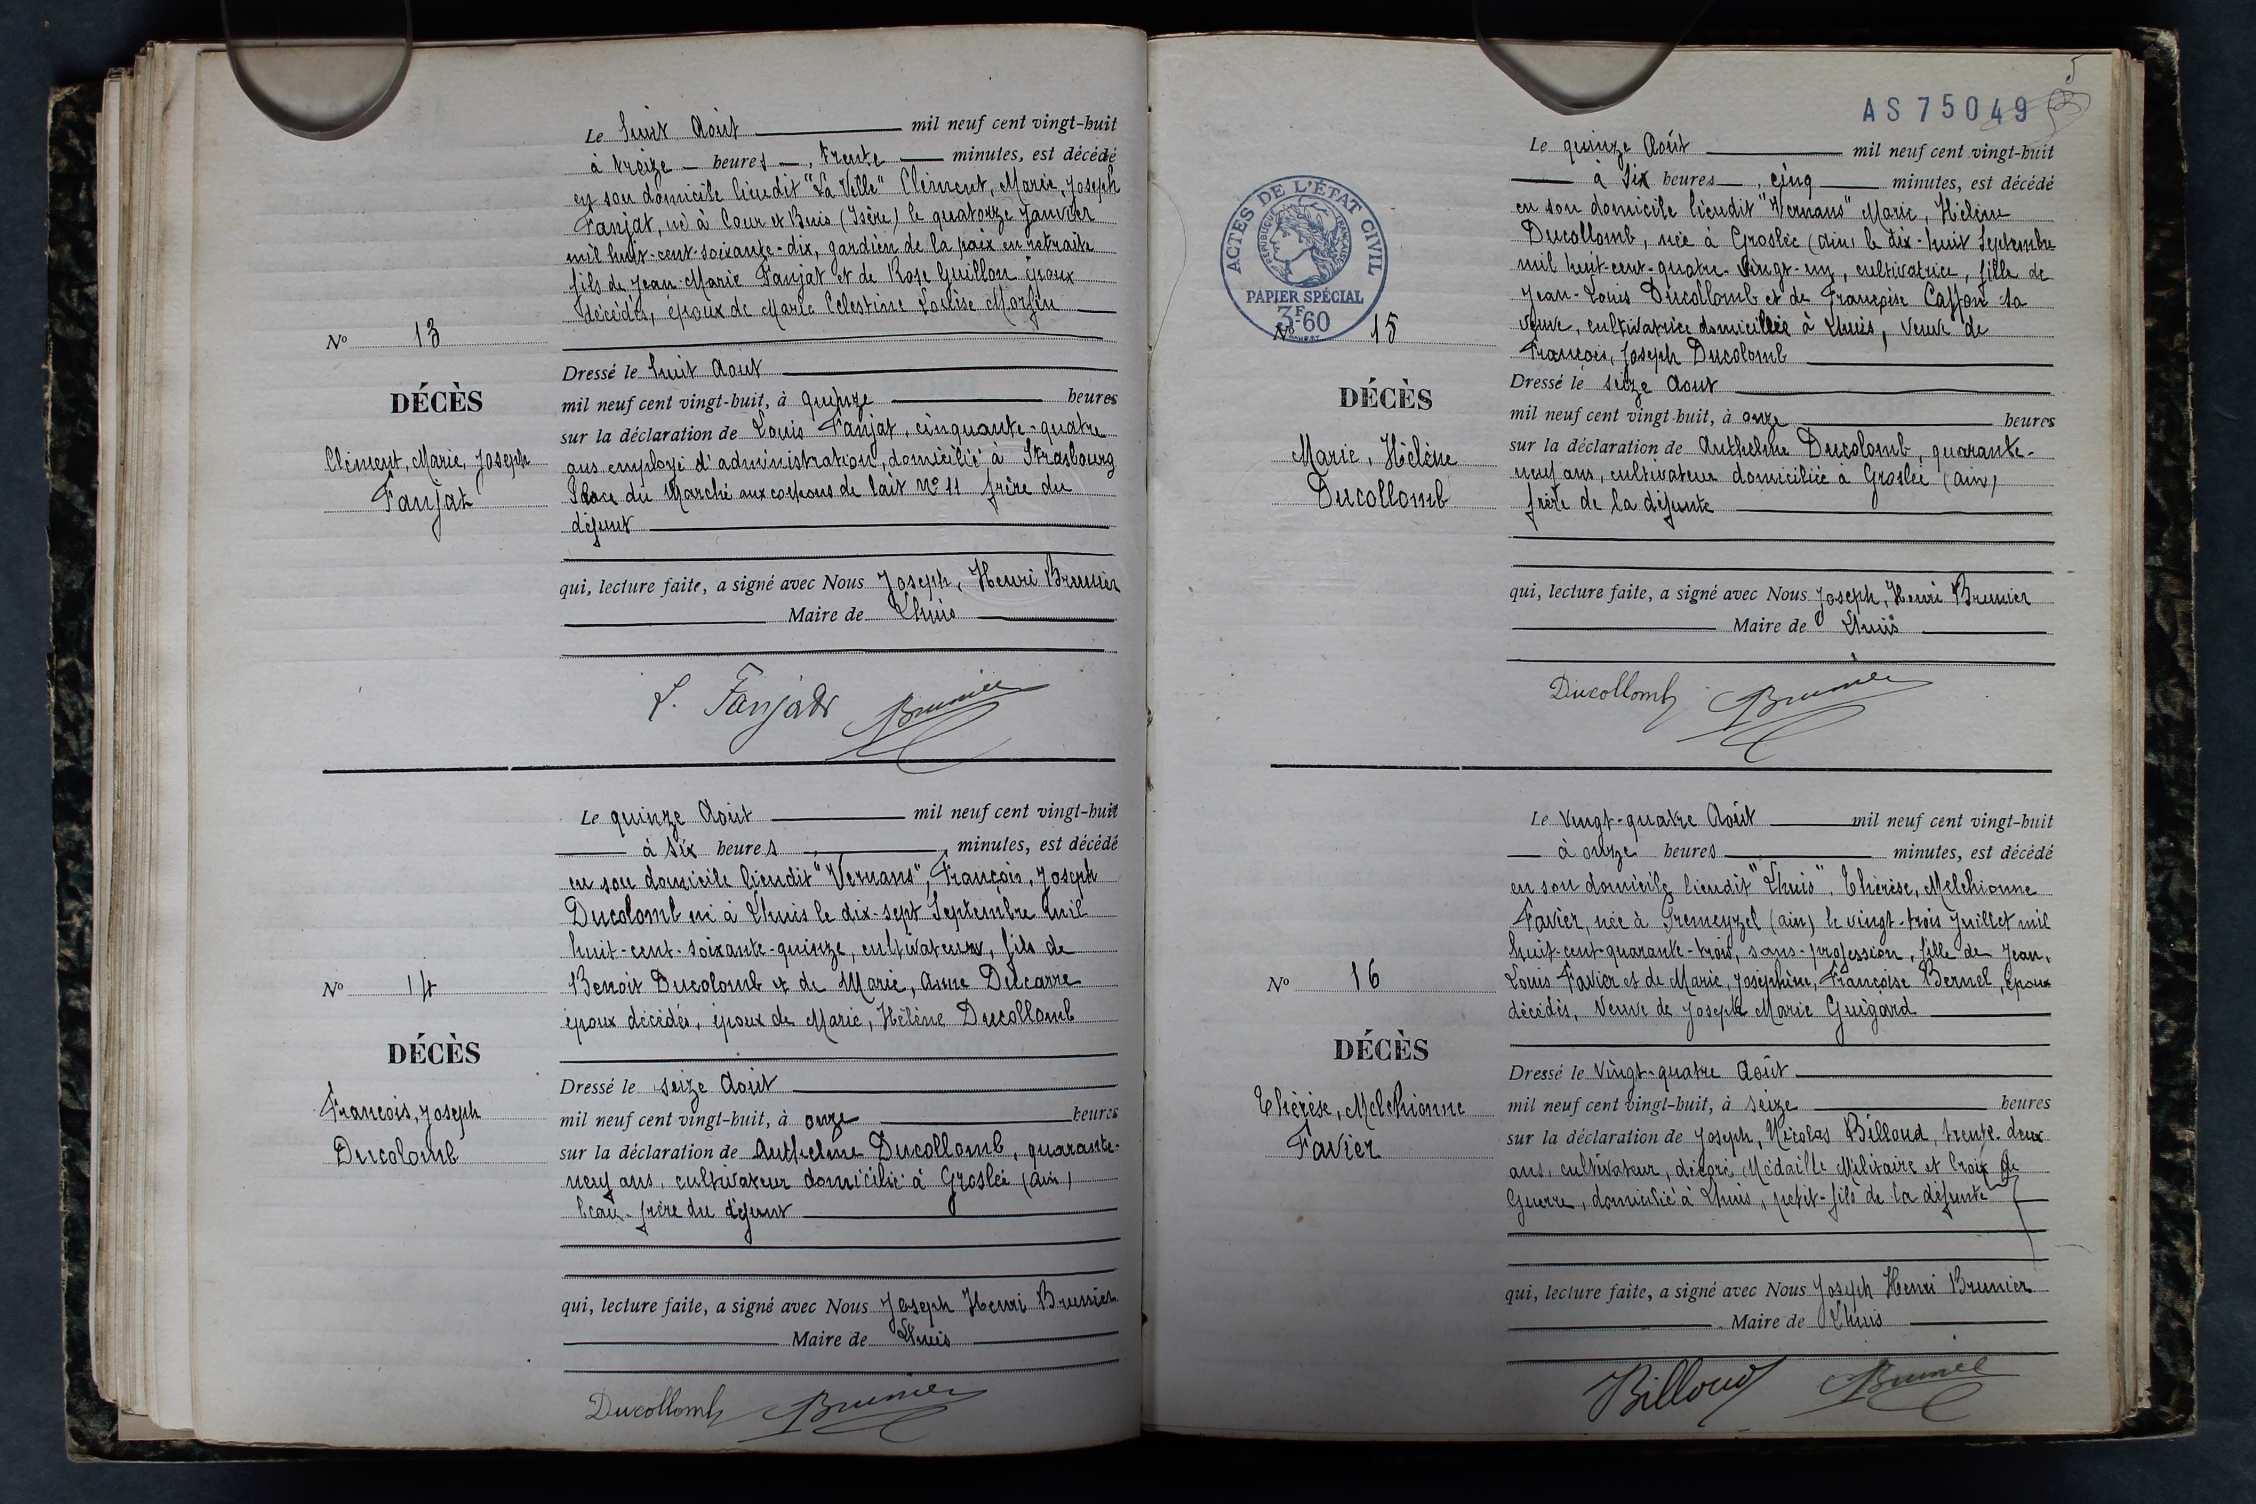 Le huit Août mil neuf cent vingt-huit
à treize heures, trente minutes, est décédé
en son domicile lieudit "La Ville" Clément, Marie, Joseph
Fanjat, né à Cour et Buis (Isère) le quatorze Janvier
mil huit-cent-soixante-dix, gardien de la paix en retraite
fils de Jean-Marie Fanjat et de Rose Guillon époux
décédés, époux de Marie Célestine Louise
No 13
Dressé le huit Aout
DÉCÈS
mil neuf cent vingt-huit, à quinze heures
sur la déclaration de Louis Fanjat, cinquante-quatre
Clément, Marie, Joseph
Fanjat
ans employé d'administration, domicilié à Strasbourg
Place du Marché aux cochons de lait No 11 frère du
défunt
qui, lecture faite, a signé avec Nous Joseph, Henri Brunier
Maire de Lhuis
L. Fanjat Brunier
Le quinze Août mil neuf cent vingt-huit
à six heures, minutes, est décédé
en son domicile lieudit "Vernans", François, Joseph
Ducolomb né à Lhuis le dix-sept Septembre mil
huit-cent-soixante-quinze, cultivateur, fils de
No 14
Benoit Ducolomb et de Marie, Anne Delcarre
époux décédés, époux de Marie, Hélène Ducollomb
DÉCÈS
Dressé le seize Août
François, Joseph
Ducolomb
mil neuf cent vingt-huit, à onze heures
sur la déclaration de Anthelme Ducollomb, quarante-
neuf ans, cultivateur domicilié à Groslée (ain)
beau-frère du défunt
qui, lecture faite, a signé avec Nous Joseph Henri Brunier
Maire de Lhuis
Ducollomb Brunier
5
AS 75049
ACTES DE L'ÉTAT CIVIL
RÉPUBLIQUE FRANÇAISE
PAPIER SPÉCIAL
3F60
Le quinze Août mil neuf cent vingt-huit
à six heures, cinq minutes, est décédé
en son domicile lieudit "Vernans" Marie, Hélène
Ducollomb, née à Groslée (ain) le dix-huit Septembre
mil huit-cent-quatre-vingt-un, cultivatrice, fille de
Jean-Louis Ducollomb et de Françoise Caffon sa
veuve, cultivatrice domiciliée à Lhuis, veuve de
François, Joseph Ducolomb
No 15
Dressé le seize Aout
DÉCÈS
mil neuf cent vingt-huit, à onze heures
sur la déclaration de Anthelme Ducolomb, quarante-
Marie, Hélène
Ducollomb
neuf ans, cultivateur domiciliée à Groslée (ain)
frère de la défunte
qui, lecture faite, a signé avec Nous Joseph, Henri Brunier
Maire de Lhuis
Ducollomb Brunier
Le vingt-quatre Août mil neuf cent vingt-huit
à onze heures minutes, est décédé
en son domicile lieudit "Lhuis". Thérèse, Melchionne
Favier, née à Premeyzel (ain) le vingt-trois Juillet mil
huit-cent-quarante-trois, sans-profession, fille de Jean,
No 16
Louis Favier et de Marie, Joséphine, Françoise Bernel, époux
décédés, Veuve de Joseph Marie Guigard
DÉCÈS
Dressé le Vingt-quatre Août
Thérèse, Melchionne
Favier
mil neuf cent vingt-huit, à seize heures
sur la déclaration de Joseph, Nicolas Billoud, trente-deux
ans, cultivateur, décoré Médaille Militaire et Croix de
Guerre, domicilié à Lhuis, petit-fils de la défunte
qui, lecture faite, a signé avec Nous Joseph Henri Brunier
Maire de Lhuis
Billoud Brunier